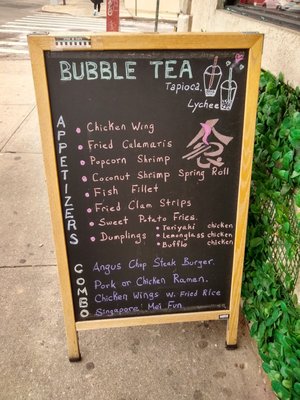 BUBBLE TEA
Tapioca
Lychee
APPETIZERS
Chicken Wing
Fried Calamaris
Popcorn Shrimp
Coconut Shrimp Spring Roll
Fish Fillet
Fried Clam Strips
Sweet Potato Fries.
Dumplings • Teriyaki chicken
• Lemonglass chicken
• Bufflo chicken
COMBO
Angus Chop Steak Burger.
Pork or Chicken Ramen.
Chicken Wings w. Fried Rice
Singapore Mei Fun